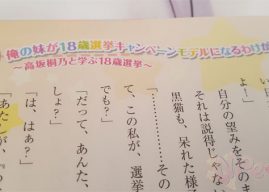 俺の妹が18歳選挙キャンペーンモデルになるわけが
～高坂桐乃と学ぶ18歳選挙～
よ！
自分の望みをそのま
それは説得じゃな
黒猫も、呆れた様
「………その
て、この私が、選挙
でも？」
「だって、あんた、
しょ？」
「は、はぁ？
「あたしが、